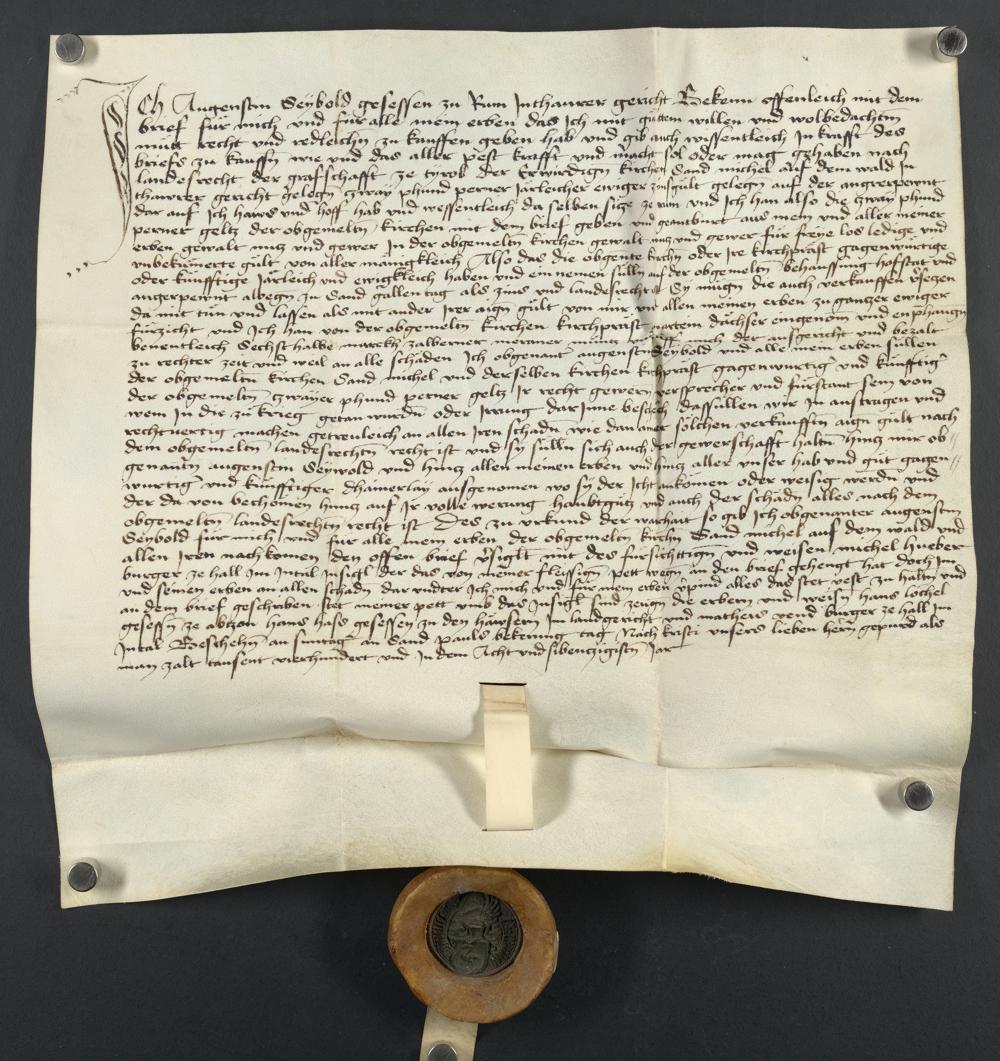 Ich Augenstin Seybold gesessen zu Rum Inthawrer gericht Bekenn offenleich mit dem
brief für mich und für alle mein erben das Ich mit guttem willen und wolbedachtem
mutt recht und redleichn zu kauffen geben hab und gib auch wissentleich In krafft des
briefs zu kauffn wie und das aller pest krafft und macht sol oder mag gehaben nach
landesrecht der grafschafft ze tyrol der Erwirdign kirchen Sand michel auf dem wald In
thawrer gericht gelegn zway phund perner Järleicher ewiger zins gült gelegn auf der angrerpewnt
dar auf Ich haws und hoff hab und wessentleich da selben size ze rum und Ich han also die zway phund
perner geltz der obgemeltn kirchen mit dem brief geben und geantburt aus mein und aller meiner
erben gewalt nutz und gewer In der obgemeltn kirchen gewalt nutz und gewer für freye los ledige und
unbekümerte gült von aller mänigkleich Also das die obgente kirchn oder Ire kirchpräst gagenwürtige
oder künfftige Järleich und ewigkleich haben und ein nemen sülln auf der obgemeltn behaussung hofstat und
angerpewnt albegn zu Sand gallen tag als zins und landesrecht ist Sy mügn die auch verkauffen versezen
da mit tün und lassen als mit ander Irer aign gült von mir und allen meinen erben zu gantzer ewiger
fürzicht und Ich han von der obgemeltn kirchen kirchpräst martein dächser eingenom und enphangn
benentleich Sechsthalbe marckh zalberner meraner münts der ausgericht und bezalt
zu rechter zeit und weil an alle schäden Ich obgenant augenstin Seybold und alle mein erben süllen
der obgemeltn kirchen Sand michel und derselben kirchen kirchpräst gagenwurtig und künfftig
der obgemeltn zwayer phund perner geltz Ir recht gewern versprecher und fürstant sein von
wem In die zü krieg getan wurdn oder Irrung dar Inne beschech dassüllen wir In austragen und
rechtuertig machen getreuleich an allen Iren schadn wie dan aner sölchen verkaufften aign gült nach
dem obgemeltn landesrechtn recht ist und sy sülln sich auch der gewerschafft haltn hintz mir ob
genantn augenstin Seywold und hintz allen meinen erben und hintz aller unser hab und güt gagen
wurtig und künfftiger dhainerlay ausgenomen wo sy der Icht ankömen oder weisig werdn und
der da von bechömen hintz auf Ir volle werung haubtgütz und auch der schädn alles nach dem
obgemeltn landesrechtn recht ist Des zu urkund der warhait so gib Ich obgenanter augenstin
Seybold für mich und für alle mein erben der obgemeltn kirchn Sand michel auf dem wald und
allen Iren nachkomen den offen brief versiglt mit des fürsichttign und weisen michel hueber
burger ze hall Im Intal Insigl der das von meiner fleissign pett wegn an den brief gehengt hat doch Im
und seinen erben an allen schadn dar undter Ich mich und für mein erben verpind alles das stet vest zu haltn und
an dem brief geschriben stet meiner pett umb das Insigl sind zeugn die erbern und weisn hans lochel
gesessn ze abtzon hans hass gesessen zu den häwsern Im landgericht und matheis vend burger ze hall Im
Intal Beschehn an suntag an Sand pauls bekerung tag Nach kristi unsers lieben hern gepurd als
man zalt tausent vierhundert und In dem Acht und sibentzigistn Jar